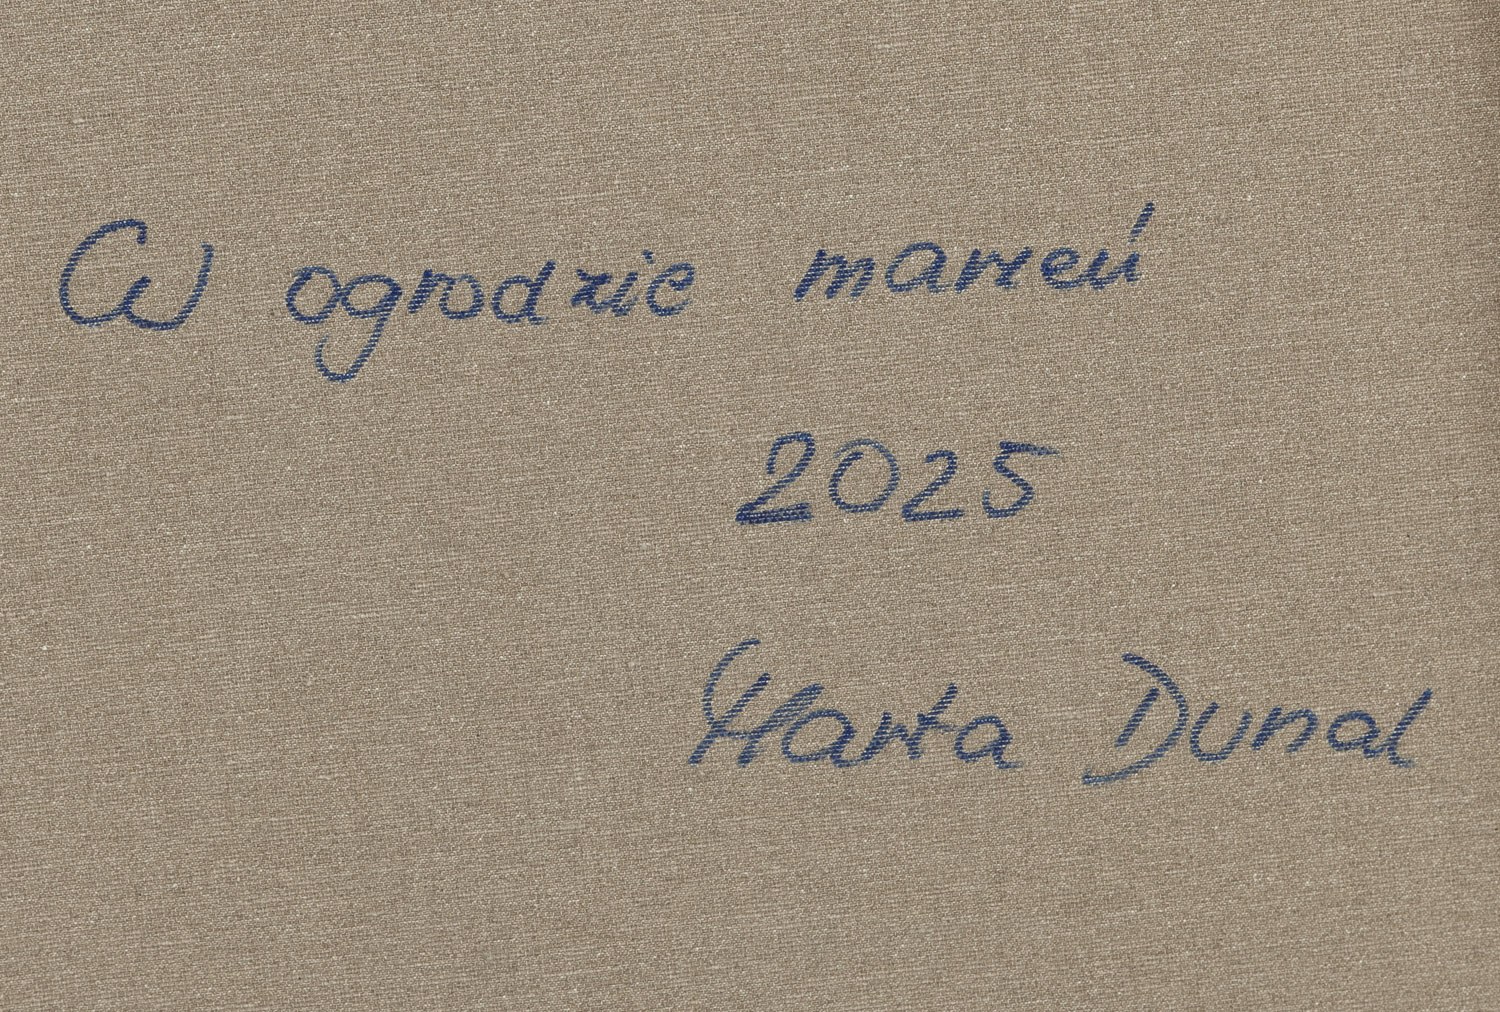 W ogrodzie marzeń
2025
Marta Dunal